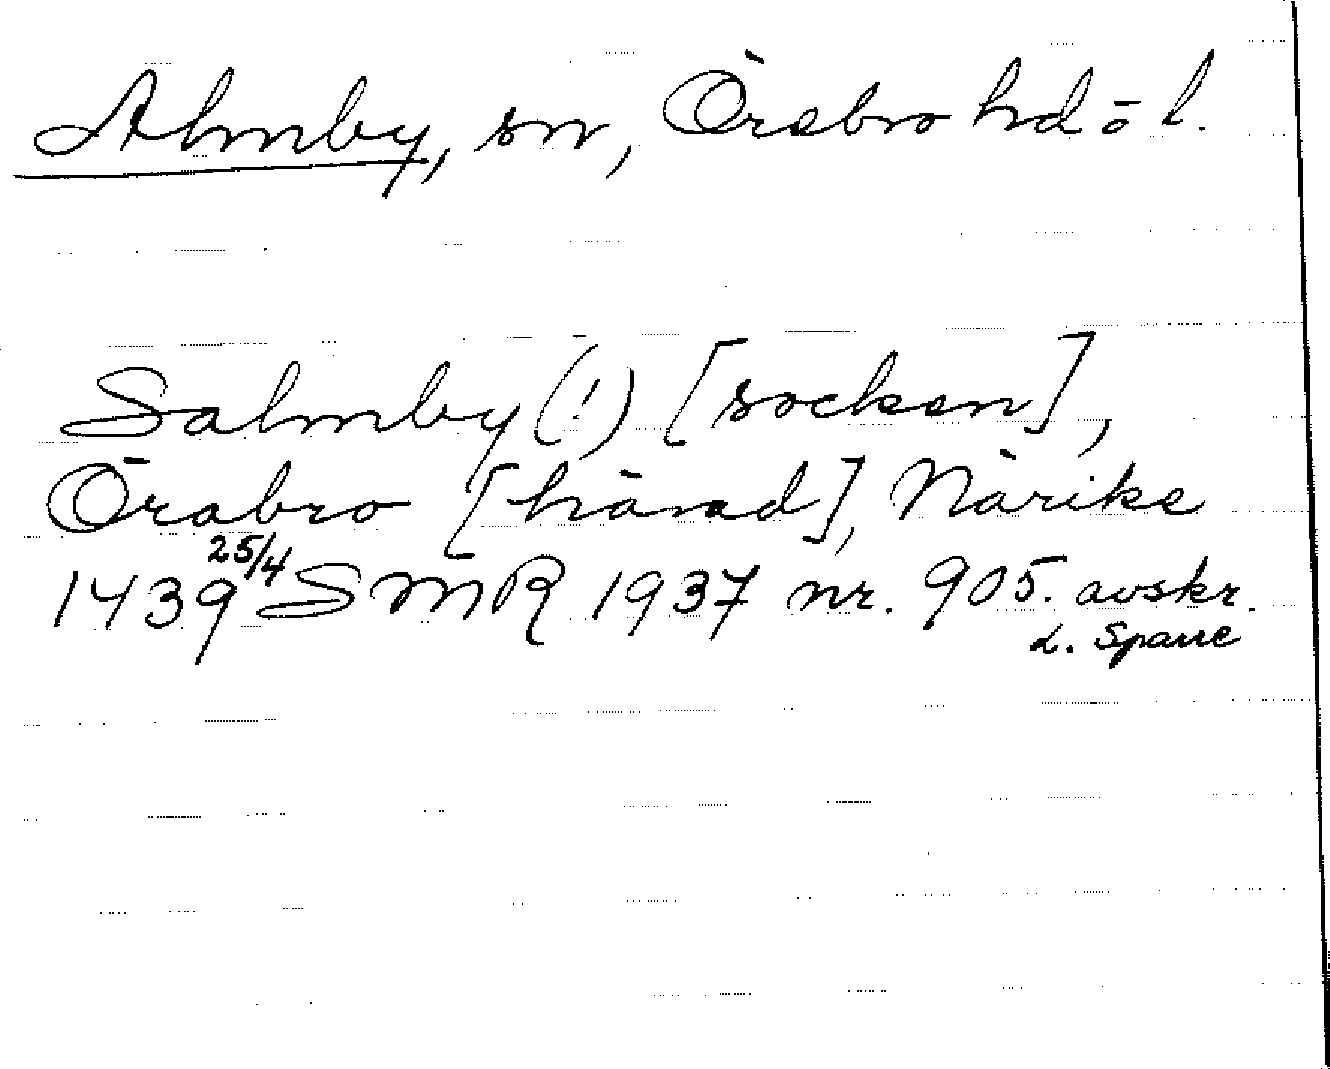 Almby, sn, Örebro hd ö l.
Salmby (!) [socken],
Örabro [härad], Närike
1439 25/4 SMR 1937 nr. 905. avskr.
L. Sparre